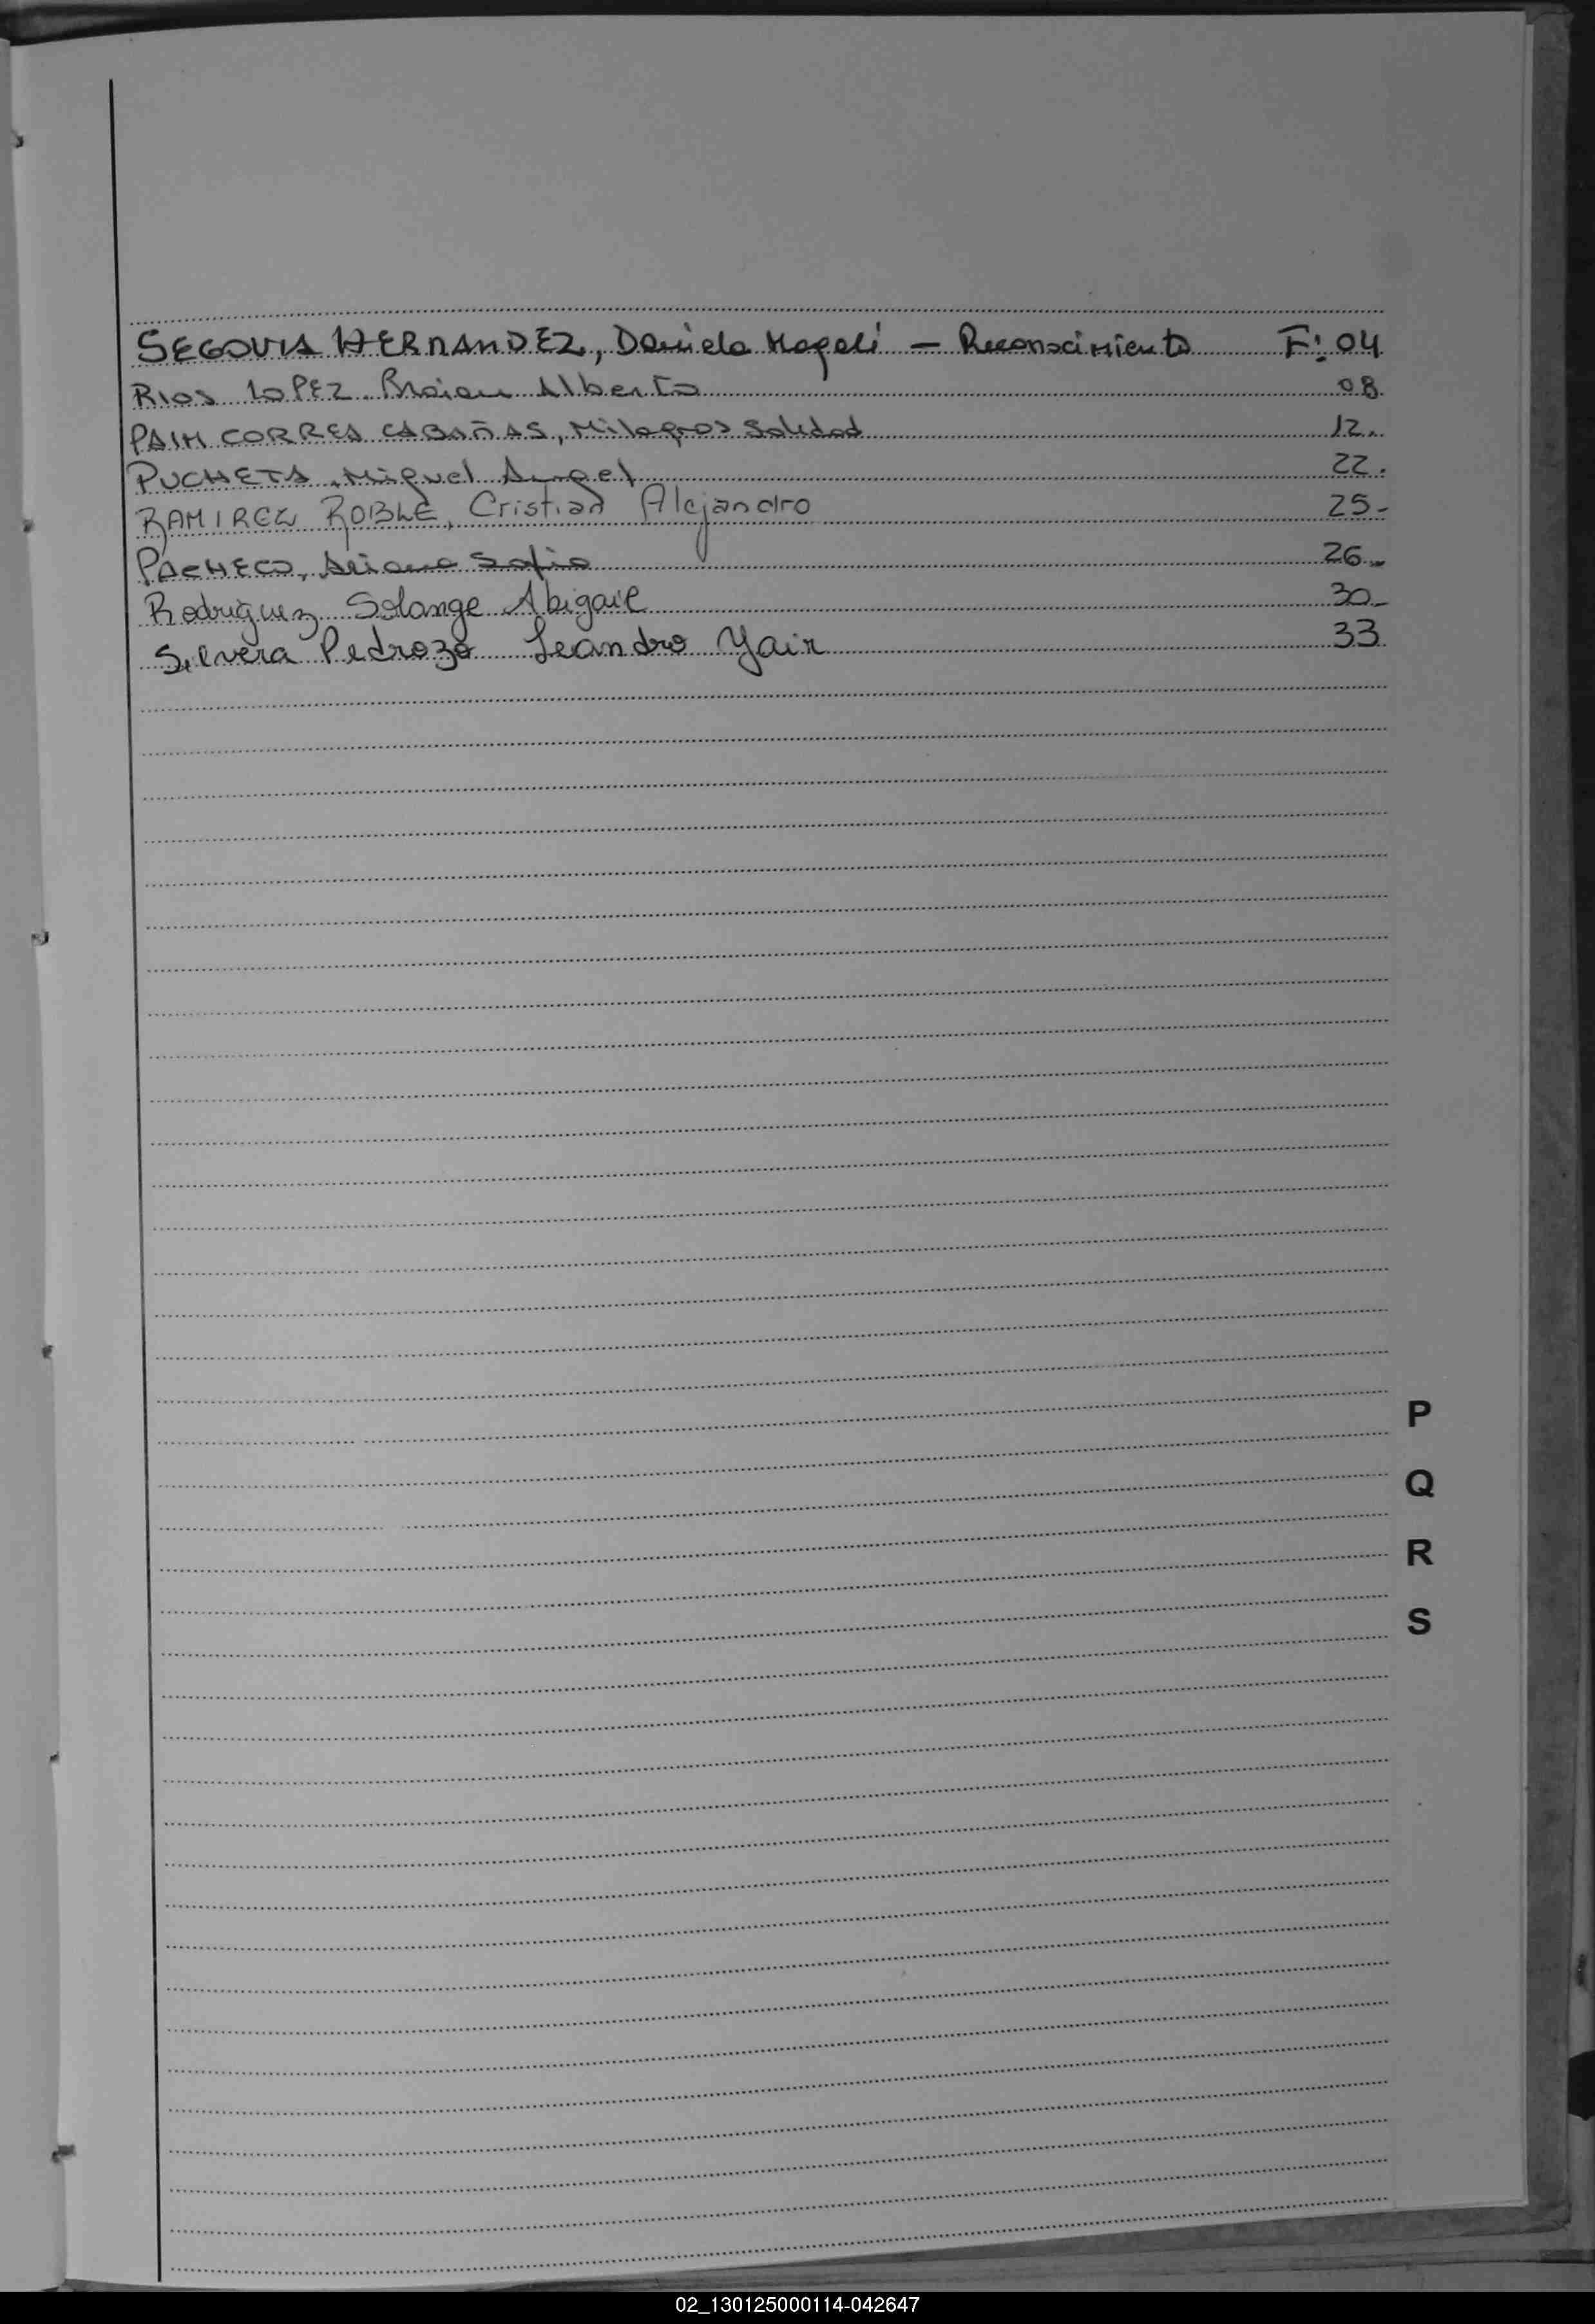 SEGOVIA HERNANDEZ, Daniela Magali — Reconocimiento F: 04
RIOS LOPEZ. Braian Alberto 08
PAIM CORREA CABAÑAS, Milagros Soledad 12.
PUCHETA, Miguel Angel 22.
RAMIREZ ROBLE, Cristian Alejandro 25-
PACHECO, Ariana Sofia 26-
Rodriguez Solange Abigail 30-
Silvera Pedrozo Leandro Yair 33
P
Q
R
S
02_130125000114-042647